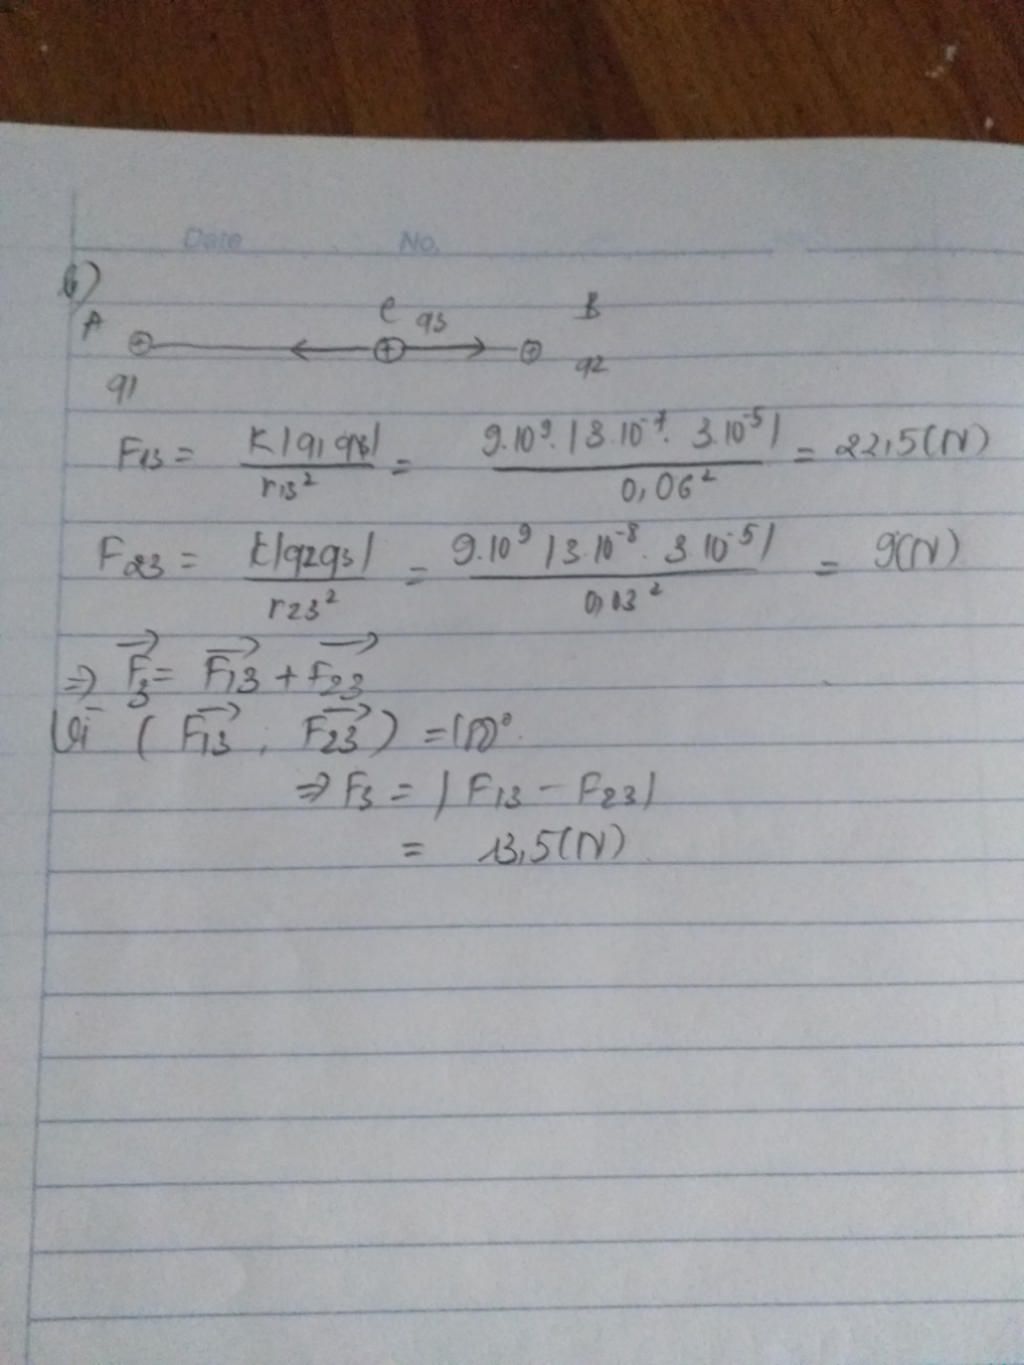 Date No.
b)
A C q3 B
q1 q2
F13 = K|q1 q3| / r13² = 9.10⁹.|3.10⁻⁷. 3.10⁻⁵| / 0,06² = 22,5(N)
F23 = k|q2q3| / r23² = 9.10⁹ |3.10⁻⁸. 3.10⁻⁵| / 0,03² = 9(N)
=> F₃→ = F13→ + F23→
Vì (F13→, F23→) =
=> F3 = |F13 - F23|
= 13,5(N)